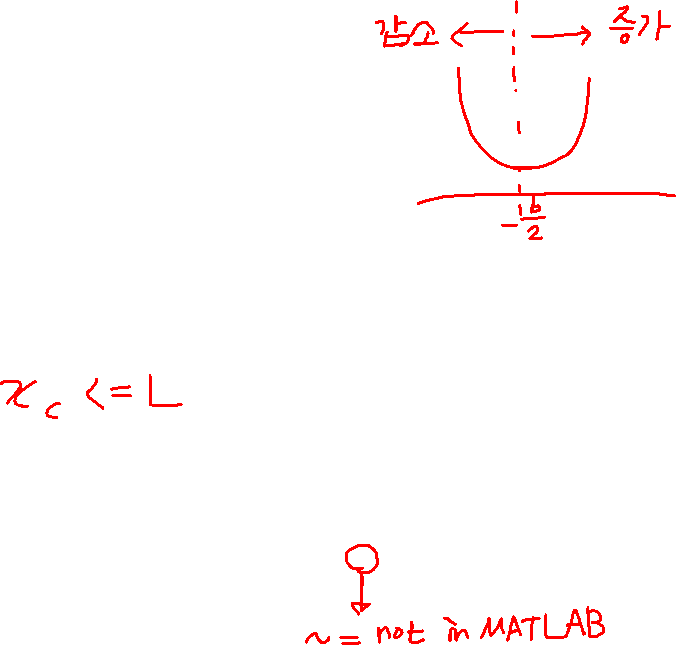 감소 증가
-b/2
x_c <= L
~ = not in MATLAB